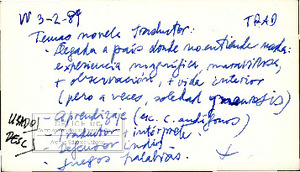 VV 3-2-89 TRAD
Temas novela traductor:
- Llegada a país donde no entiende nada:
experiencia magnífica, maravillosa,
+ observación, + vida interior
(pero a veces, soledad y
- Aprendizaje (esc. C. audífonos)
- Traductor + intérprete
- Profesor
- Juegos palabras.
USADO
DESC